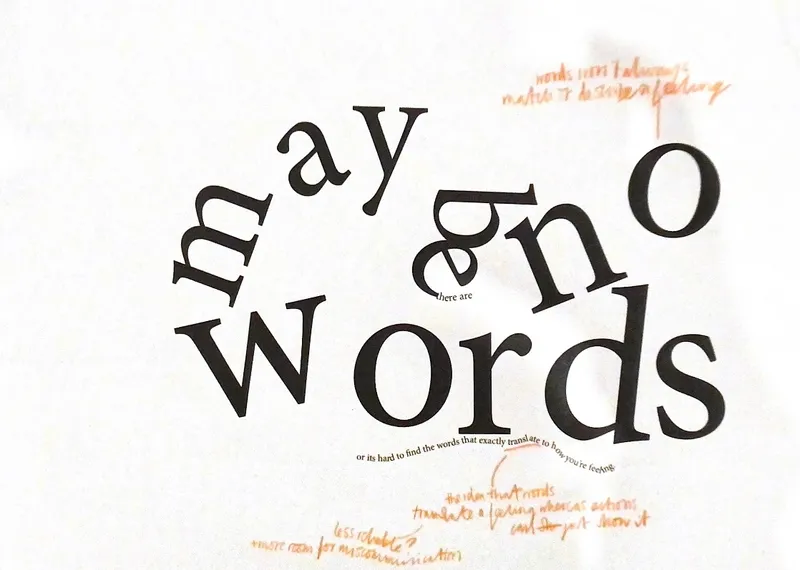 words won't always
match or describe a feeling
may
be
no
there are
words
or its hard to find the words that exactly translate to how you're feeling.
the idea that words
translate a feeling whereas actions
can just show it
less reliable?
+more room for miscommunication